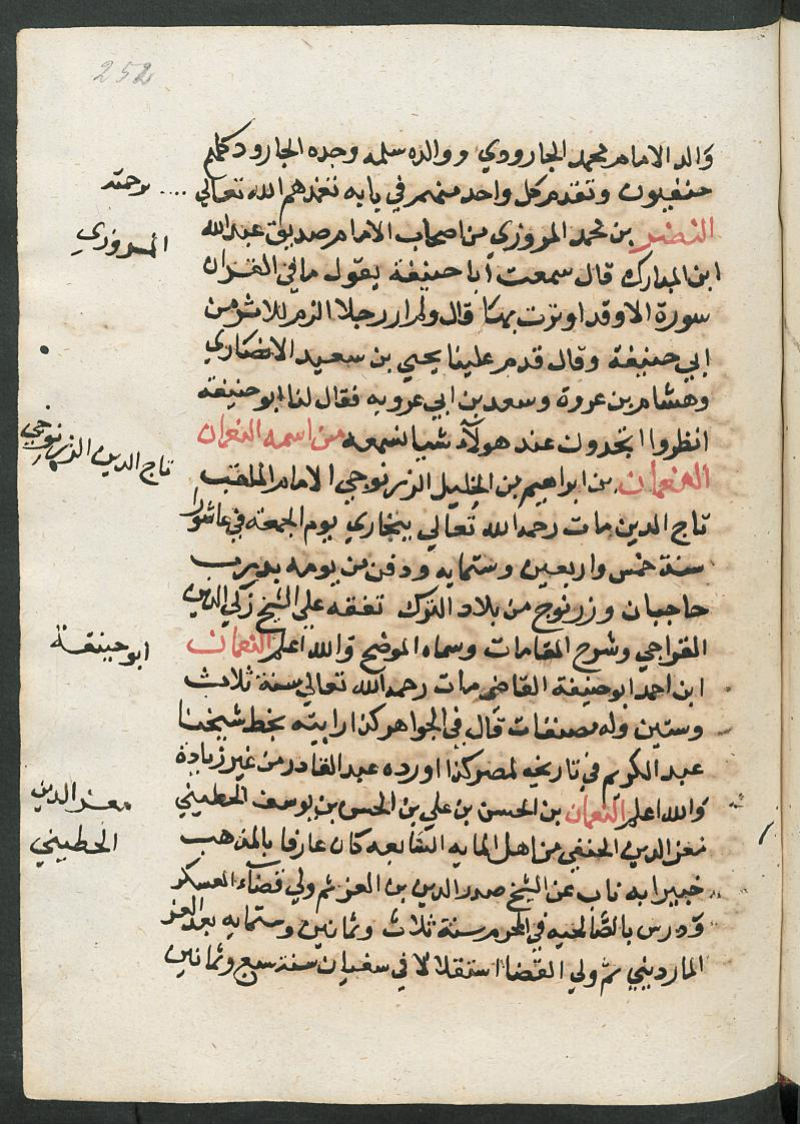 252
والد الامام محمد الجارودي ووالده سلمه وجده الجارود كلهم
حنفيون وتقدم كل واحد منهم في بابه تغمدهم الله تعالي .... برحمته
النضر بن محمد المروزي من اصحاب الامام صديق عبد الله
المروزي
ابن المبارك قال سمعت أبا حنيفة يقول ما في القران
سورة الا وقد اوترت بها قال ولم ار رجلا الزم للاثر من
ابي حنيفة وقال قدم علينا يحيي بن سعيد الانصاري
وهشام بن عروة وسعد بن ابي عروبه فقال لنا ابو حنيفة
انظروا اتجدون عند هولآء شيا نسمعه من اسمه النعمان
النعمان بن ابراهيم بن الخليل الزرنوجي الامام الملقب
تاج الدين الزرنوجي
تاج الدين مات رحمه الله تعالي ببخاري يوم الجمعة في عاشورا
سنة خمس واربعين وستمايه ودفن من يومه بدرب
حاجبان وزرنوج من بلاد الترك تفقه علي الشيخ زكي الدين
القراحي وشرح المقامات وسماه الموضح والله اعلم النعمان
ابو حنيفة
ابن احمد ابو حنيفة القاضي مات رحمه الله تعالي سنة ثلاث
وستين وله مصنفات قال في الجواهر كذا رايته بخط شيخنا
عبد الكريم في تاريخه لمصر كذا اورده عبد القادر من غير زيادة
والله اعلم النعمان بن الحسن بن علي بن الحسن بن يوسف الخطيبني
معز الدين
الخطيبني
معز الدين الحنفي من اهل المايه السابعه كان عارفا بالمذهب
خبيرا به ناب عن الشيخ صدر الدين بن العز ثم ولي قضآء العسكر
ودرس بالصالحيه في المحرم سنة ثلاث وثمانين وستمايه بعد العز
المارديني ثم ولي القضا استقلالا في سعبان سنة سبع وثمانين